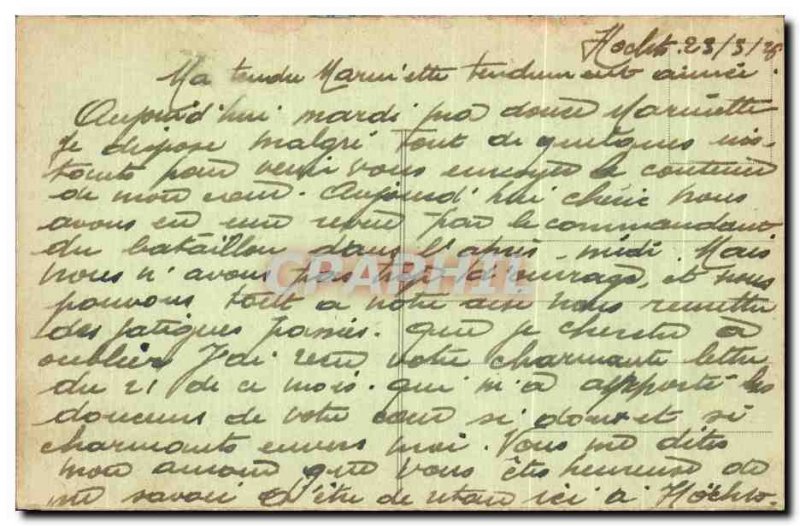 Höchst. 23/3/26
Ma tendre Mariette tendrement aimée.
Aujourd'hui mardi ma douce Mariette
je dispose malgré tout de quelques ins-
tants pour venir vous envoyer le contenu
de mon cœur. Aujourd'hui chérie nous
avons eu une revue par le commandant
du bataillon dans l'après-midi. Mais
nous n'avons pas trop d'ouvrage, et nous
pouvons tout à notre aise nous remettre
des fatigues passées. que je cherche à
oublier J'ai reçu votre charmante lettre
du 21 de ce mois. qui m'a apporté les
douceurs de votre cœur si doux et si
charmants envers moi. Vous me dites
mon amour que vous êtes heureuse de
me savoir d'être de retour ici à Höchst.
CPARPHIL